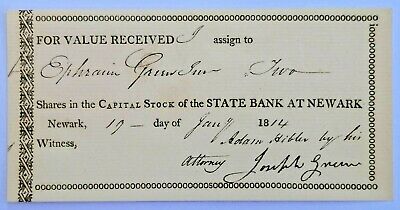 FOR VALUE RECEIVED I assign to
Ephraim Green Junr Two
Shares in the CAPITAL STOCK of the STATE BANK AT NEWARK
Newark, 19 day of Jany 1814
Witness, Adam Hibler by his
Attorney Joseph Green